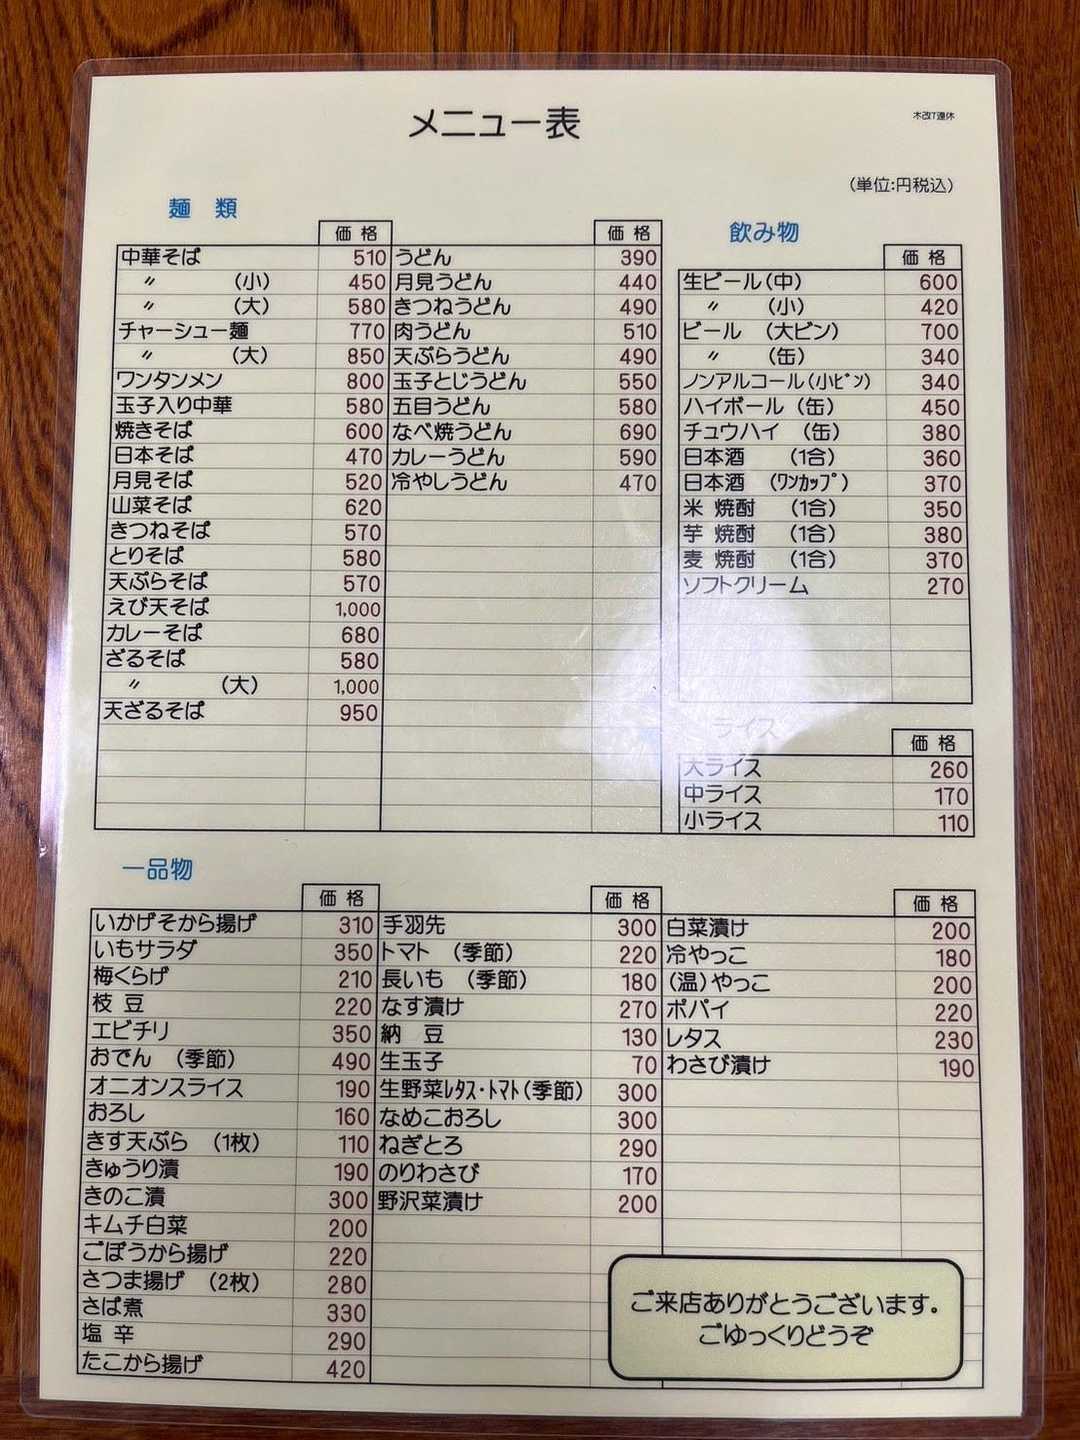 メニュー表
(単位:円税込)
麺 類
価 格
中華そば 510
〃 (小) 450
〃 (大) 580
チャーシュー麺 770
〃 (大) 850
ワンタンメン 800
玉子入り中華 580
焼きそば 600
日本そば 470
月見そば 520
山菜そば 620
きつねそば 570
とりそば 580
天ぷらそば 570
えび天そば 1,000
カレーそば 680
ざるそば 580
〃 (大) 1,000
天ざるそば 950
価 格
うどん 390
月見うどん 440
きつねうどん 490
肉うどん 510
天ぷらうどん 490
玉子とじうどん 550
五目うどん 580
なべ焼うどん 690
カレーうどん 590
冷やしうどん 470
飲み物
価 格
生ビール(中) 600
〃 (小) 420
ビール (大ビン) 700
〃 (缶) 340
ノンアルコール(小ﾋﾞﾝ) 340
ハイボール (缶) 450
チュウハイ (缶) 380
日本酒 (1合) 360
日本酒 (ﾜﾝｶｯﾌﾟ) 370
米 焼酎 (1合) 350
芋 焼酎 (1合) 380
麦 焼酎 (1合) 370
ソフトクリーム 270
ライス
価 格
大ライス 260
中ライス 170
小ライス 110
一品物
価 格
いかげそから揚げ 310
いもサラダ 350
梅くらげ 210
枝 豆 220
エビチリ 350
おでん (季節) 490
オニオンスライス 190
おろし 160
きす天ぷら (1枚) 110
きゅうり漬 190
きのこ漬 300
キムチ白菜 200
ごぼうから揚げ 220
さつま揚げ (2枚) 280
さば煮 330
塩 辛 290
たこから揚げ 420
価 格
手羽先 300
トマト (季節) 220
長いも (季節) 180
なす漬け 270
納 豆 130
生玉子 70
生野菜ﾚﾀｽ・ﾄﾏﾄ(季節) 300
なめこおろし 300
ねぎとろ 290
のりわさび 170
野沢菜漬け 200
価 格
白菜漬け 200
冷やっこ 180
(温)やっこ 200
ポパイ 220
レタス 230
わさび漬け 190
ご来店ありがとうございます。
ごゆっくりどうぞ